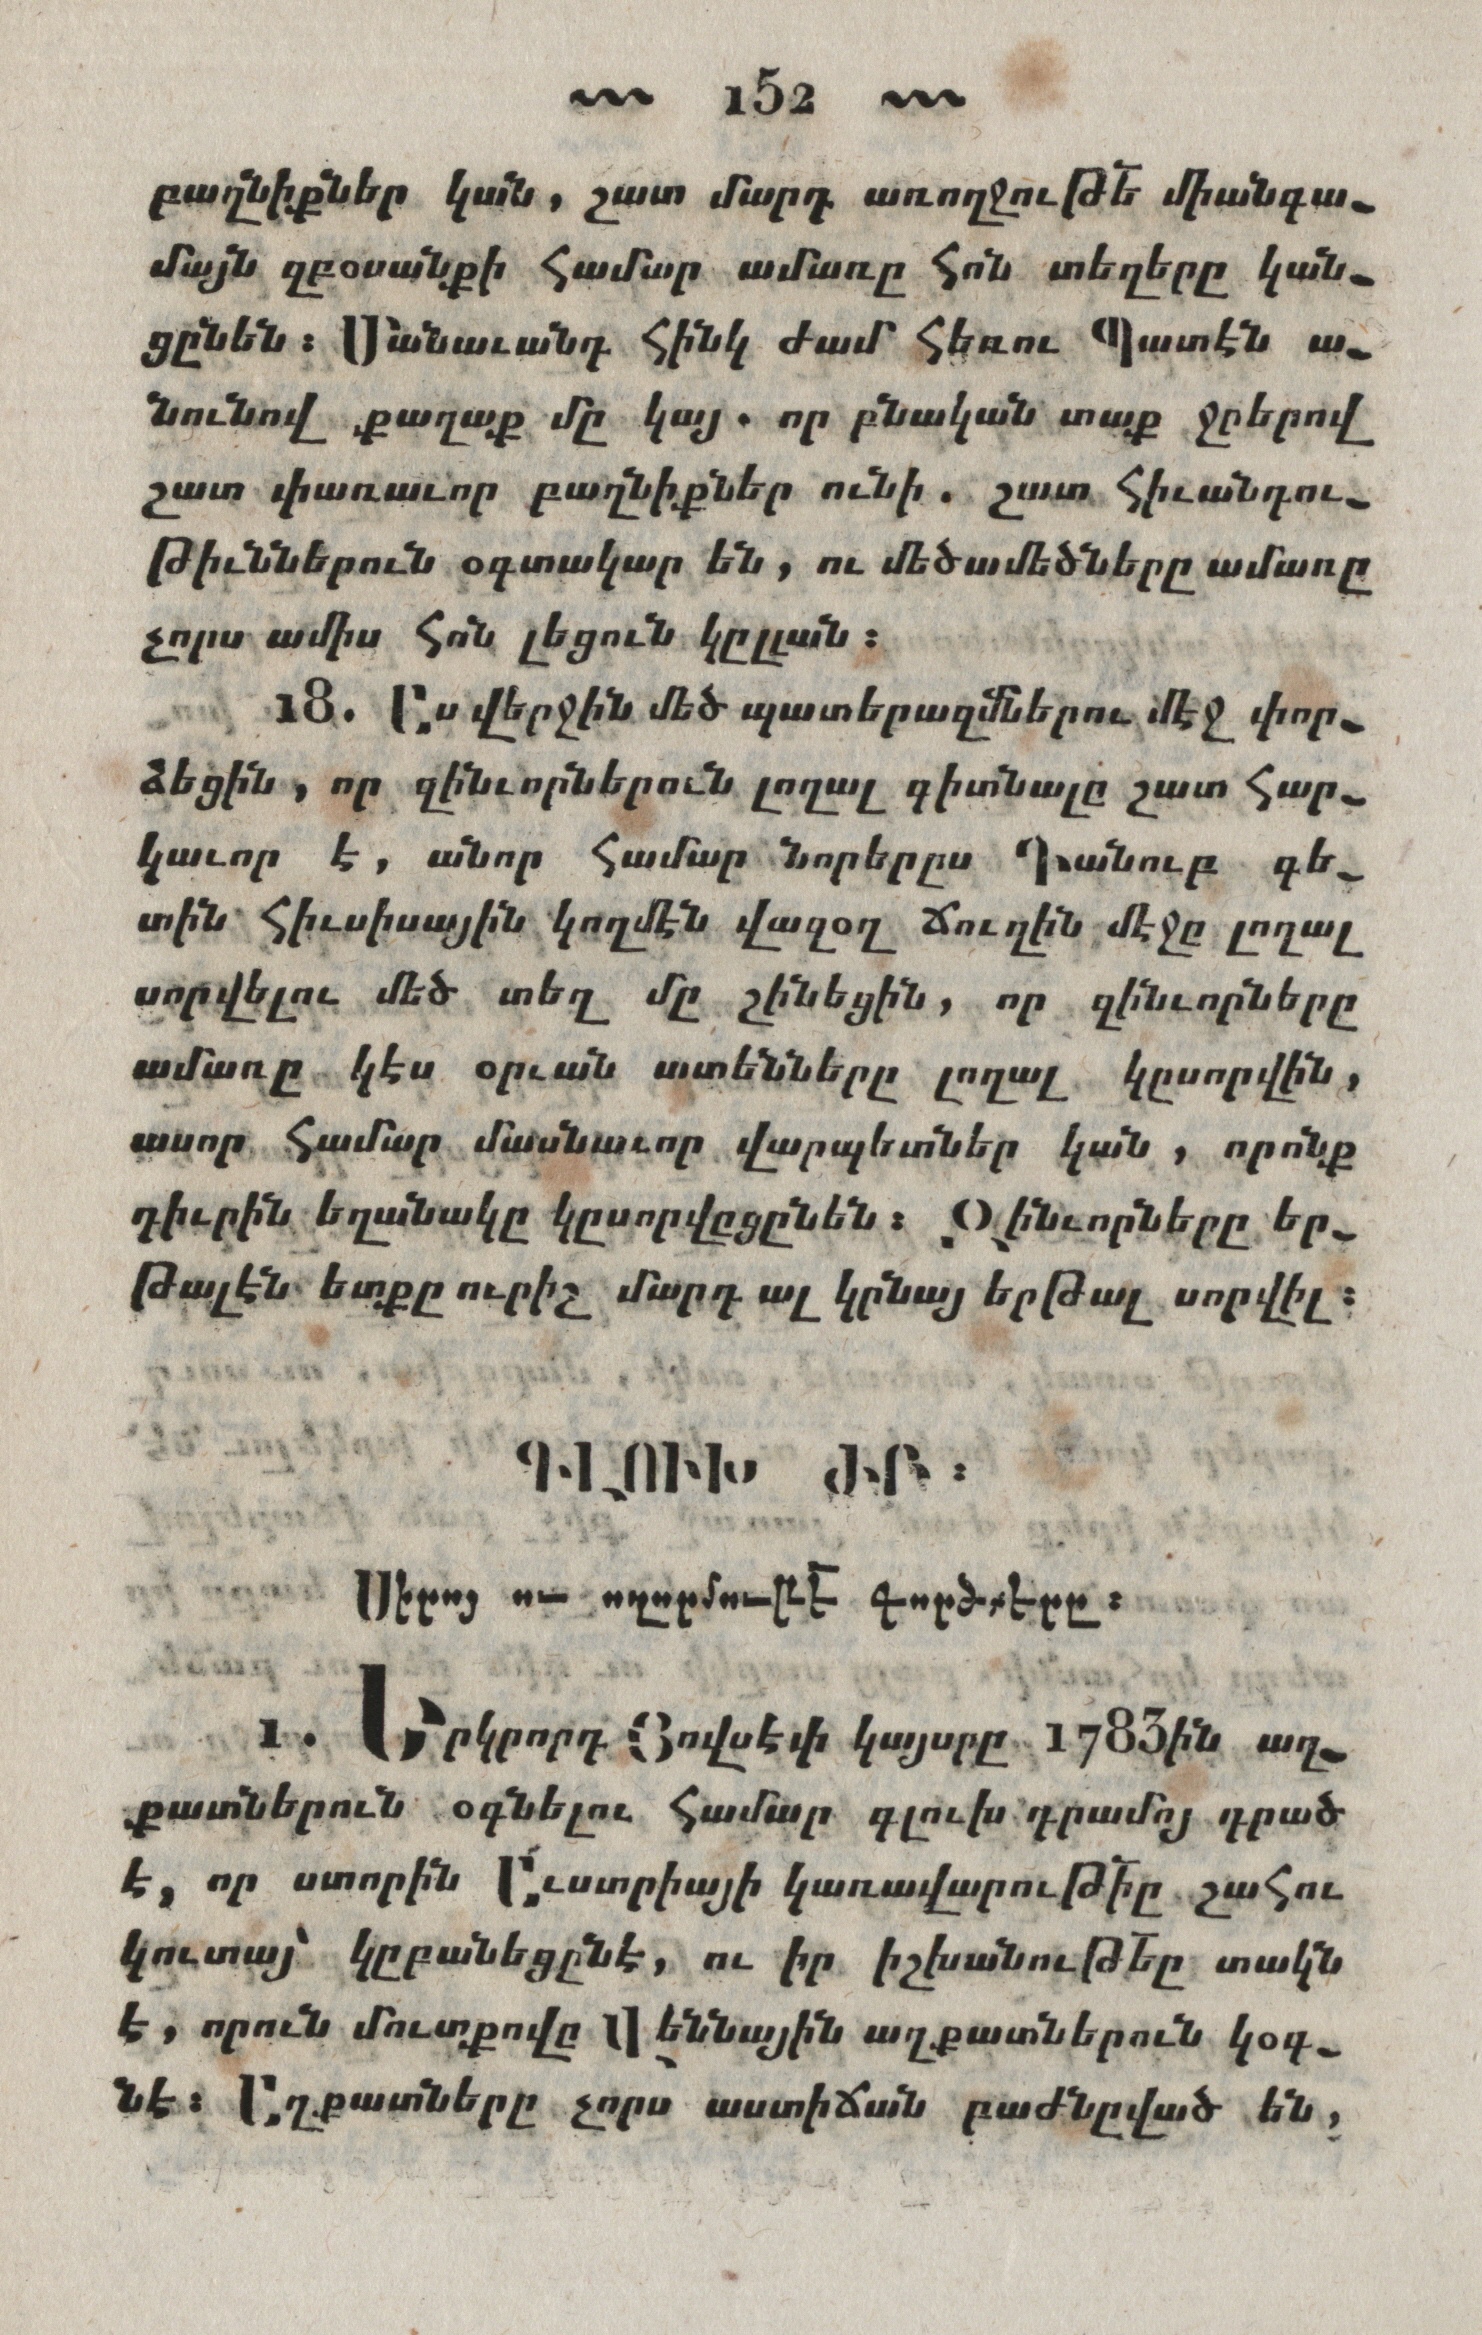 152
բաղնիքներ կան, շատ մարդ առողջութե՟ միանգա-
մայն զբօսանքի համար ամառը հոն տեղերը կան-
ցընեն։ Մանաւանդ հինկ ժամ հեռու Պատէն ա-
նունով քաղաք մը կայ. որ բնական տաք ջրերով
շատ փառաւոր բաղնիքներ ունի. շատ հիւանդու-
թիւններուն օգտակար են, ու մեծամեծները ամառը
չորս ամիս հոն լեցուն կըլլան։
18. Ըս վերջին մեծ պատերազմներու մէջ փոր-
ձեցին, որ զինւորներուն լողալ գիտնալը շատ հար-
կաւոր է, անոր համար նորերըս Դանուբ գե-
տին հիւսիսային կողմէն վազօղ ճուղին մէջը լողալ
սորվելու մեծ տեղ մը շինեցին, որ զինւորները
ամառը կէս օրւան ատենները լողալ կըսորվին,
ասոր համար մասնաւոր վարպետներ կան, որոնք
դիւրին եղանակը կըսորվըցընեն։ Զինւորները եր-
թալէն ետքը ուրիշ մարդ ալ կրնայ երթալ սորվիլ։
ԳԼՈՒԽ ԺԲ։
Սիրոյ ու ողորմութե՟ գործքերը։
1. Երկրորդ Յովսէփ կայսրը 1783ին աղ-
քատներուն օգնելու համար գլուխ դրամոյ դրած
է, որ ստորին Ա՛ւստրիայի կառավարութի՟ը շահու
կուտայ՝ կըբանեցընէ, ու իր իշխանութե՟ը տակն
է, որուն մուտքովը Վէննային աղքատներուն կօգ-
նէ։ Աղքատները չորս աստիճան բաժնըված են,